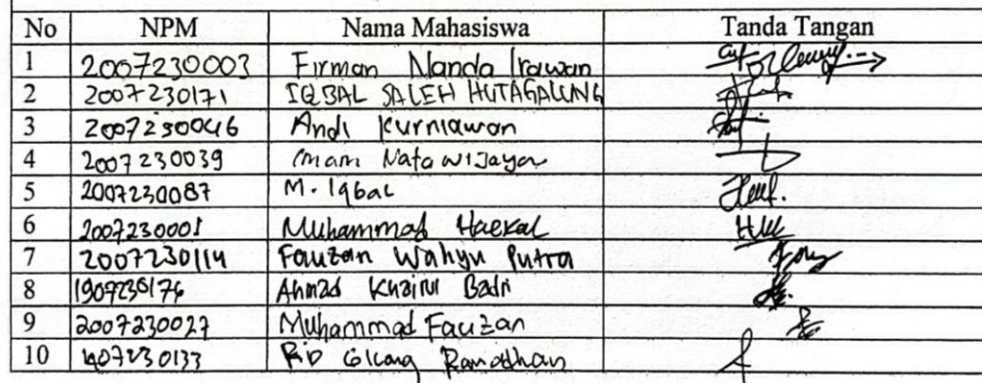 No NPM Nama Mahasiswa Tanda Tangan
1 2007230003 Firman Nanda Irawan
2 2007230171 IQBAL SALEH HUTAGALUNG
3 2007230046 Andi Kurniawan
4 2007230039 Imam Nata Wijaya
5 2007230087 M. Iqbal
6 2007230001 Muhammad Haekal
7 2007230114 Fauzan Wahyu Putra
8 1907230176 Ahmad Khairul Badri
9 2007230027 Muhammad Fauzan
10 1907230133 Rio Ramadhan